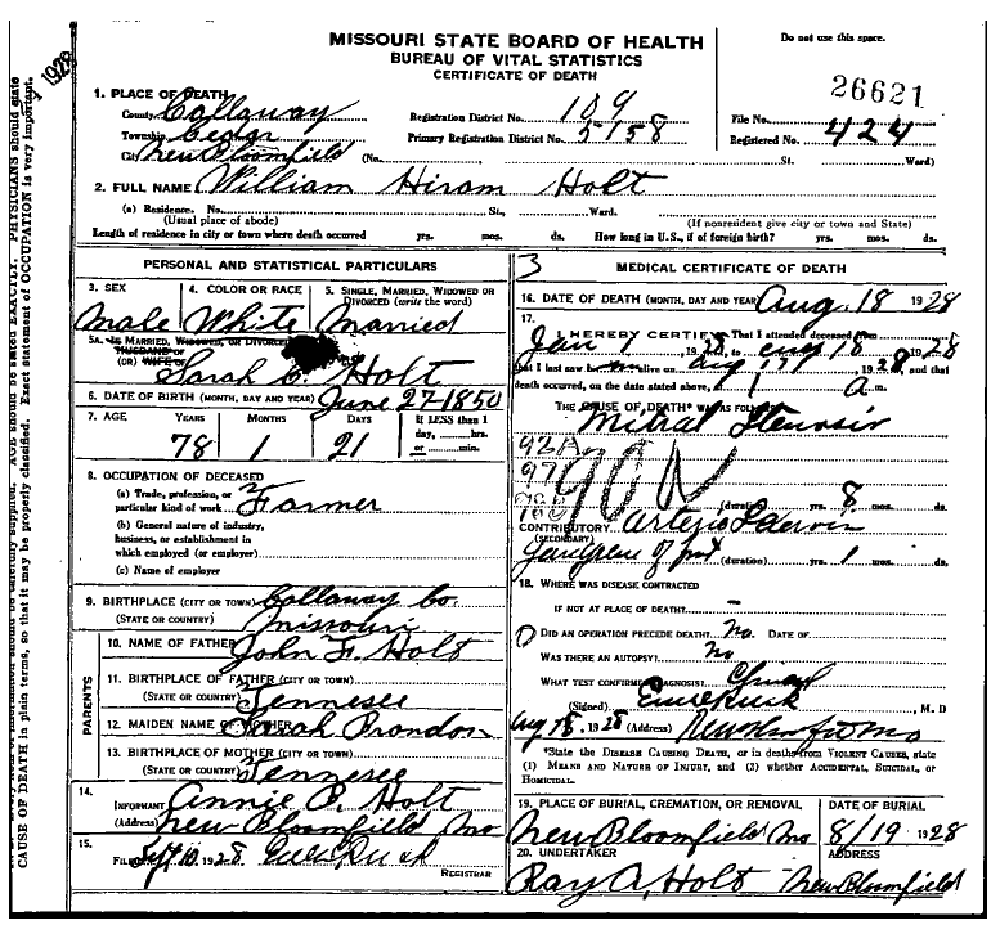 MISSOURI STATE BOARD OF HEALTH
BUREAU OF VITAL STATISTICS
CERTIFICATE OF DEATH
Do not use this space.
1928
26621
1. PLACE OF DEATH
County Callaway Registration District No. 109 File No.
Township Cedar Primary Registration District No. 5158 Registered No. 424
City New Bloomfield (No. St. Ward)
2. FULL NAME William Hiram Holt
(a) Residence. No. St. Ward.
(Usual place of abode) (If nonresident give city or town and State)
Length of residence in city or town where death occurred yrs. mos. ds. How long in U.S., if of foreign birth? yrs. mos. ds.
PERSONAL AND STATISTICAL PARTICULARS
3. SEX 4. COLOR OR RACE 5. SINGLE, MARRIED, WIDOWED OR DIVORCED (write the word)
Male White Married
5A. IF MARRIED, WIDOWED, OR DIVORCED
HUSBAND OF
(OR) WIFE OF Sarah Holt
6. DATE OF BIRTH (MONTH, DAY AND YEAR) June 27-1850
7. AGE YEARS MONTHS DAYS If LESS than 1
day, hrs.
78 1 21 or min.
8. OCCUPATION OF DECEASED
(a) Trade, profession, or
particular kind of work Farmer
(b) General nature of industry,
business, or establishment in
which employed (or employer)
(c) Name of employer
9. BIRTHPLACE (CITY OR TOWN) Callaway Co.
(STATE OR COUNTRY) Missouri
PARENTS
10. NAME OF FATHER John F. Holt
11. BIRTHPLACE OF FATHER (CITY OR TOWN)
(STATE OR COUNTRY) Tennesee
12. MAIDEN NAME OF MOTHER Sarah Brandon
13. BIRTHPLACE OF MOTHER (CITY OR TOWN)
(STATE OR COUNTRY) Tennesee
14.
INFORMANT Annie Holt
(Address) New Bloomfield Mo
15.
FILED Sept 10, 1928
REGISTRAR
3 MEDICAL CERTIFICATE OF DEATH
16. DATE OF DEATH (MONTH, DAY AND YEAR) Aug. 18 1928
17.
I HEREBY CERTIFY, That I attended deceased from
Jan 1, 1928, to Aug 18, 1928
that I last saw him alive on Aug 17, 1928, and that
death occurred, on the date stated above, 1 a m.
THE CAUSE OF DEATH* WAS AS FOLLOWS
Mitral Stenosis
92A
97
90N
(duration) yrs. 8 mos. ds.
CONTRIBUTORY Arterio
(SECONDARY)
Gangrene of foot (duration) yrs. 1 mos. ds.
18. WHERE WAS DISEASE CONTRACTED
IF NOT AT PLACE OF DEATH? –
DID AN OPERATION PRECEDE DEATH? No. DATE OF
WAS THERE AN AUTOPSY? No
WHAT TEST CONFIRMED DIAGNOSIS?
(Signed) , M. D
Aug 18, 1928 (Address) New Bloomfield Mo
*State the DISEASE CAUSING DEATH, or in deaths from VIOLENT CAUSES, state
(1) MEANS AND NATURE OF INJURY, and (2) whether ACCIDENTAL, SUICIDAL, or
HOMICIDAL.
19. PLACE OF BURIAL, CREMATION, OR REMOVAL DATE OF BURIAL
New Bloomfield Mo 8/19 1928
20. UNDERTAKER ADDRESS
Ray A. Holt New Bloomfield
AGE should be stated EXACTLY. PHYSICIANS should state
CAUSE OF DEATH in plain terms, so that it may be properly classified. Exact statement of OCCUPATION is very important.